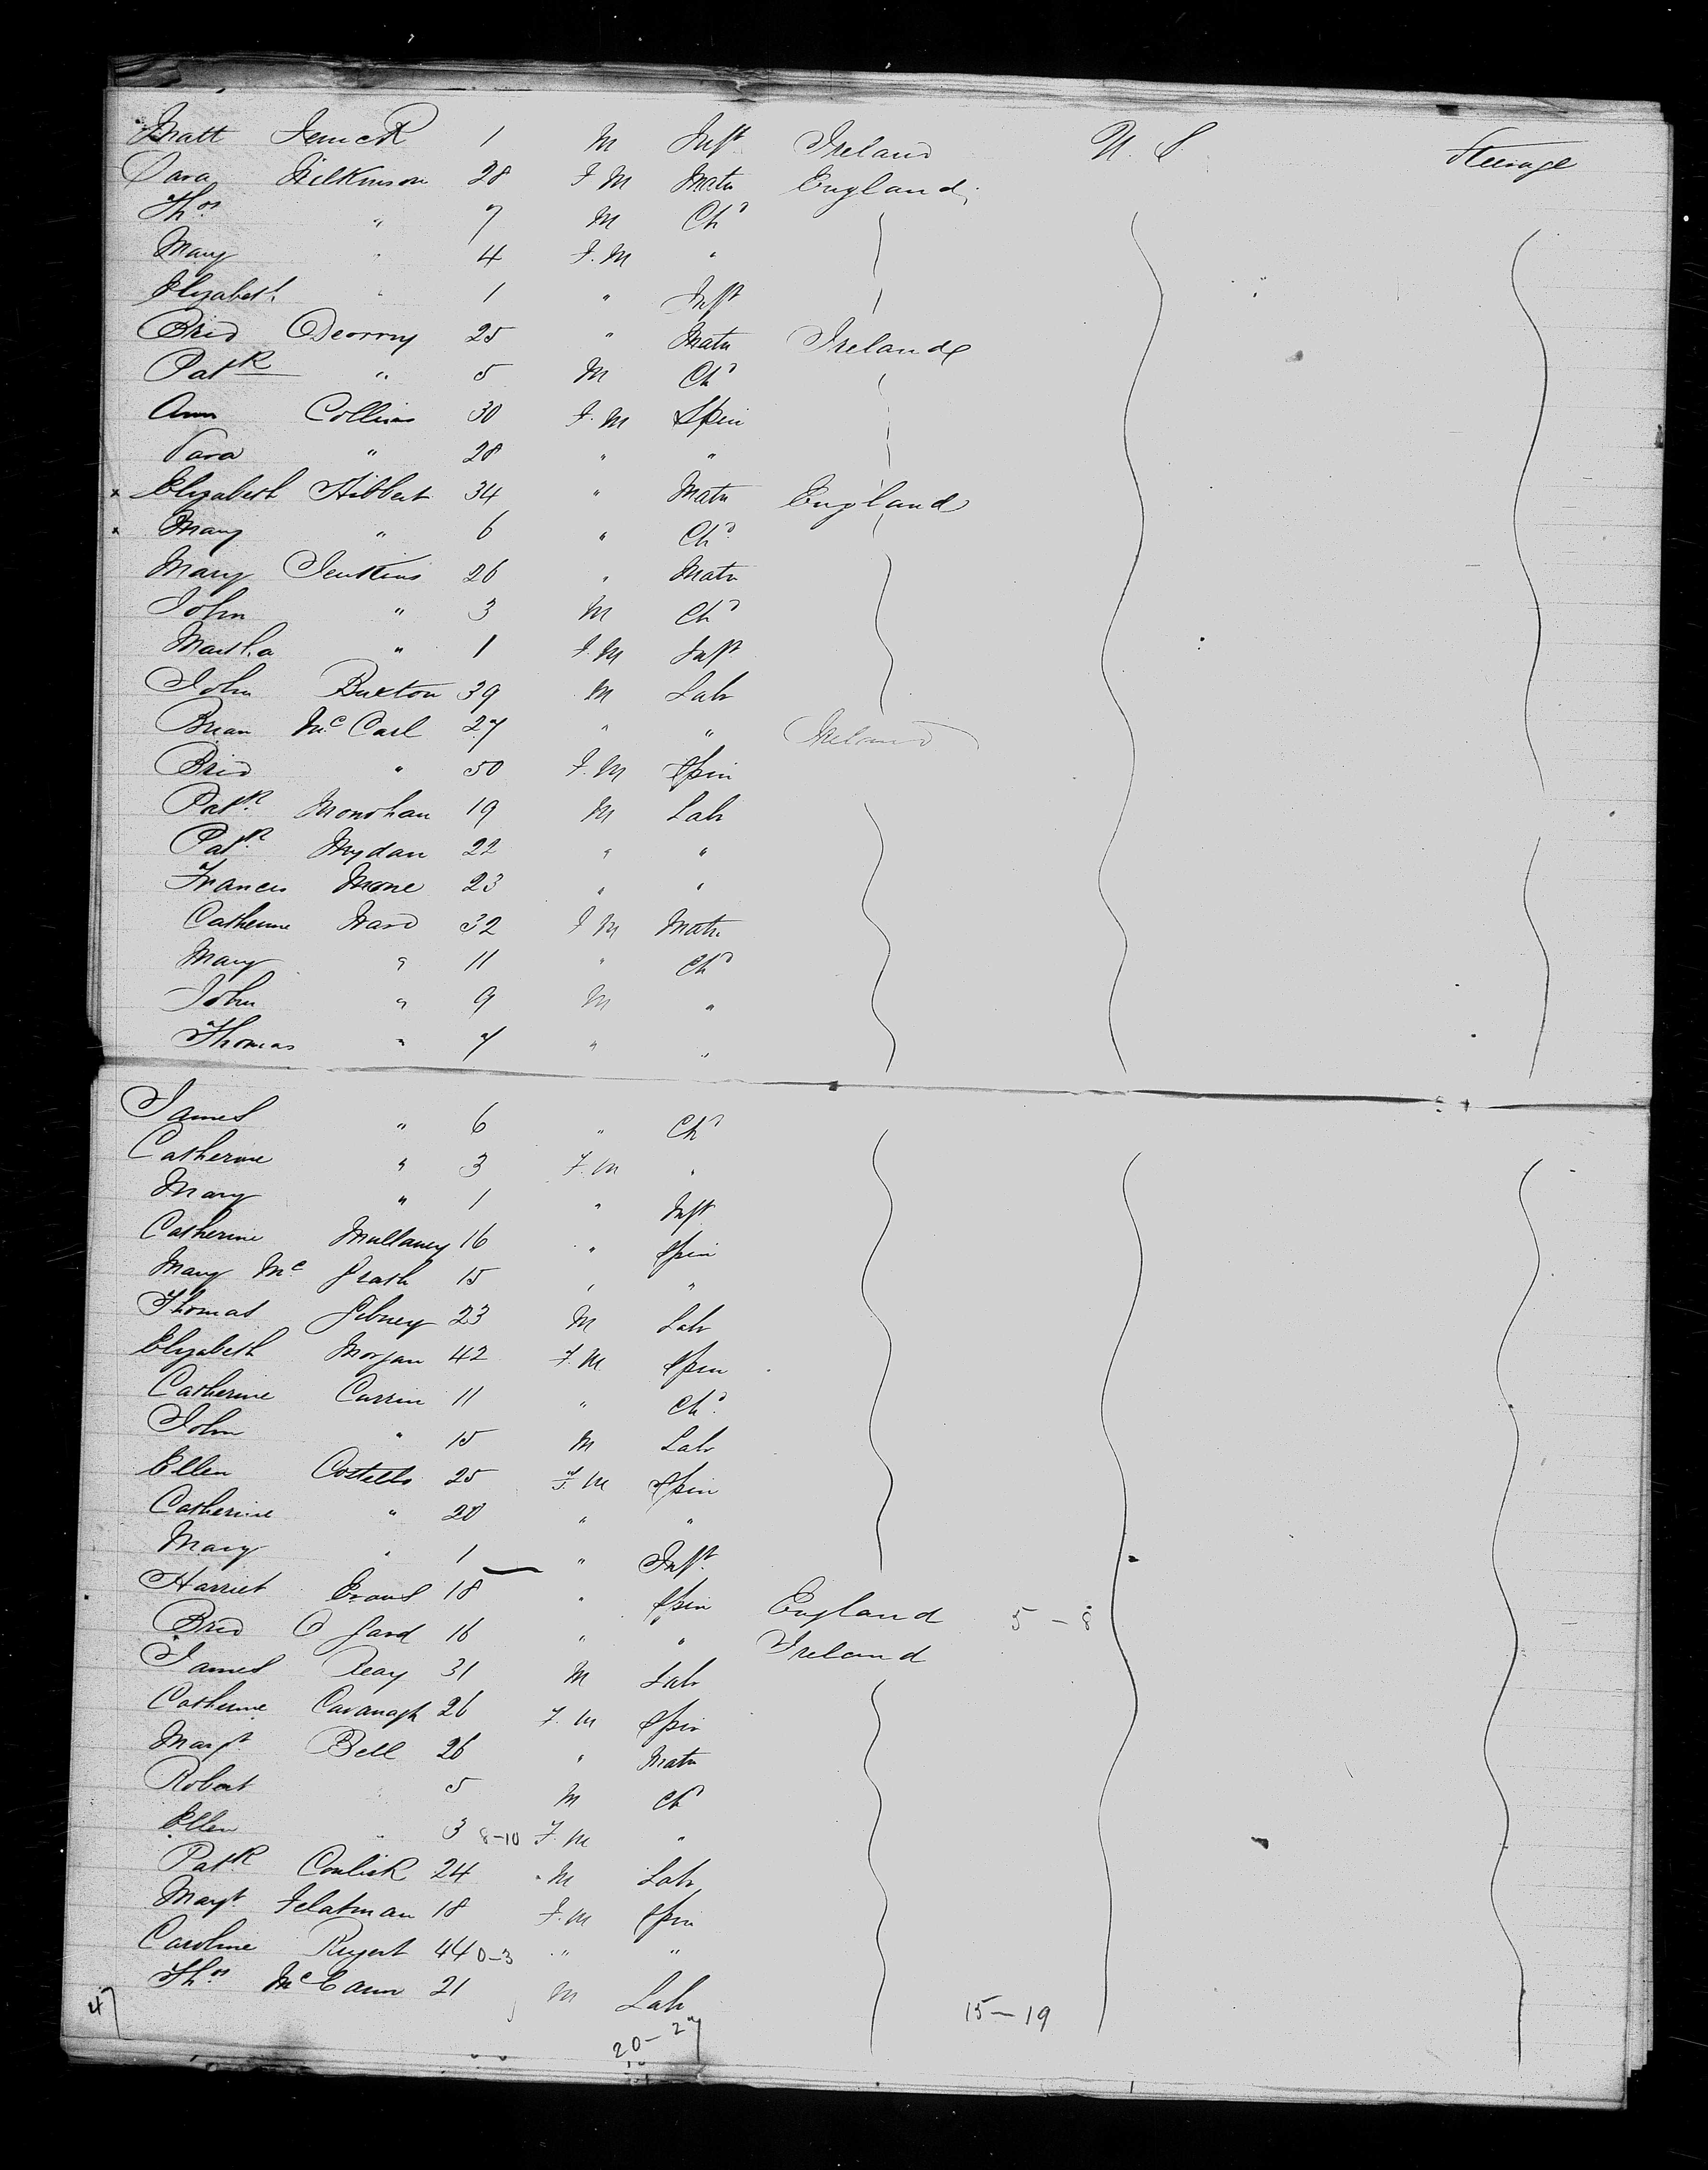 Matt 1 M Inft Ireland U. S Steerage
Sara Wilkinson 28 F M Matn England
Thos " 7 M Chd
Mary " 4 F. M "
Elizabeth " 1 " Inft
Brid 25 " Matn Ireland
Patk " 5 M Chd
Ann Collins 30 F. M Spin
Sara " 28 " "
x Elizabeth Hibbert 34 " Matn England
x Mary " 6 " Chd
Mary Jenkins 26 " Matn
John " 3 M Chd
Martha " 1 F. M Inft
John Buxton 39 M Labr
Brian Mc 27 " " Ireland
Brid " 50 F. M Spin
Patk Monohan 19 M Labr
Patk 22 " "
Frances Mone 23 " "
Catherine Ward 32 F M Matn
Mary " 11 " Chd
John " 9 M "
Thomas " 7 " "
James " 6 " Chd
Catherine " 3 F. M "
Mary " 1 " Inft
Catherine Mullaney 16 " Spin
Mary Mc Grath 15 " "
Thomas Gibney 23 M Labr
Elizabeth Morgan 42 F. M Spin
Catherine Currin 11 " Chd
John " 15 M Labr
Ellen Costello 25 F. M Spin
Catherine " 20 " "
Mary " 1 " Inft
Harriet Evans 18 " Spin England 5 - 8
Brid O 16 " " Ireland
James Reay 31 M Labr
Catherine Cavanagh 26 F. M Spin
Margt Bell 26 " Matn
Robert " 5 M Chd
Ellen " 3 8-10 F. M "
Patk 24 M Labr
Margt 18 F. M Spin
Caroline 44 0-3 " "
Thos McCann 21 M Labr
47 20-27 15-19